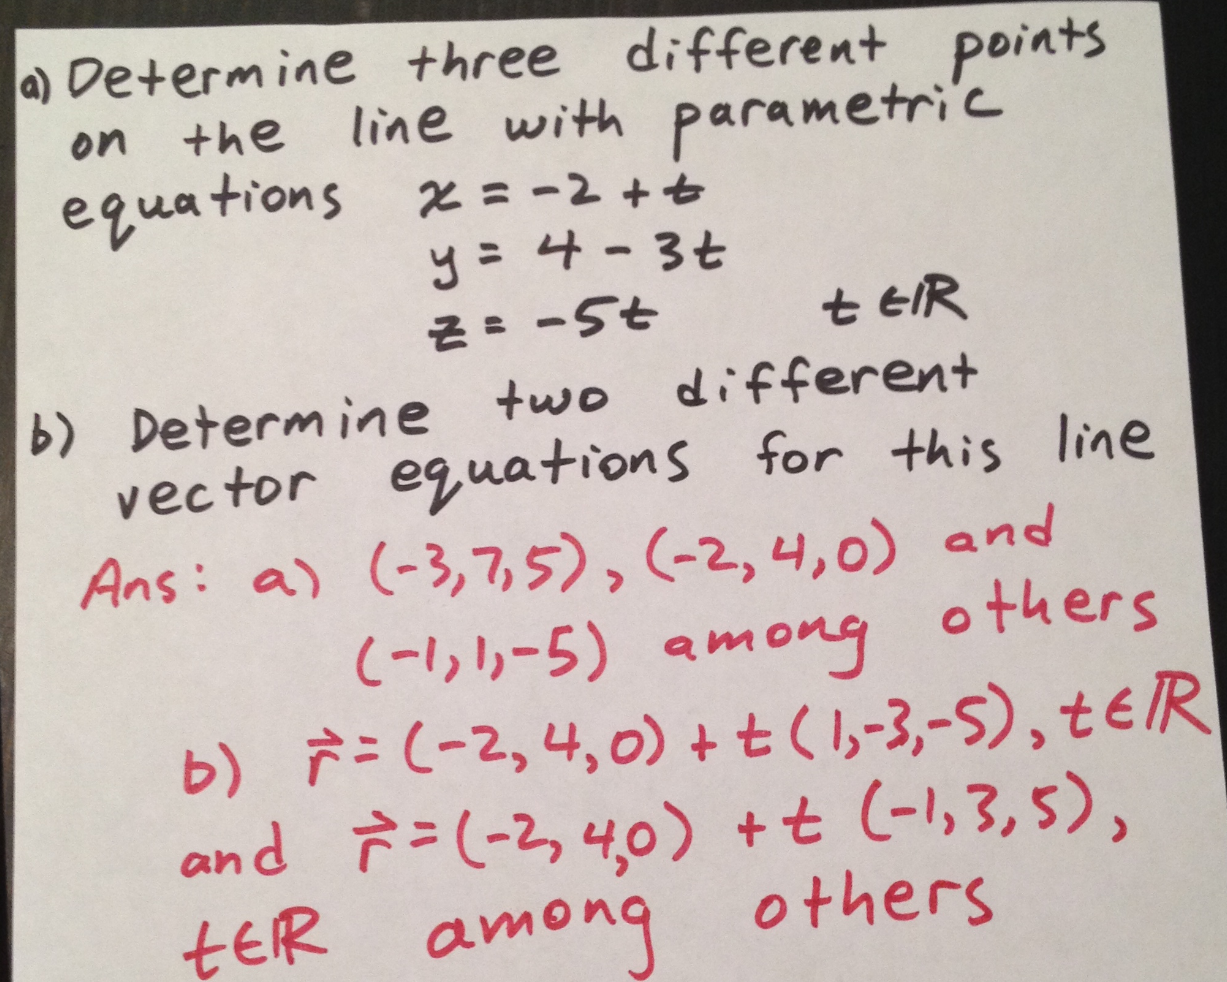 a) Determine three different points
on the line with parametric
equations x = -2 + t
y = 4 - 3t
z = -5t t ∈ ℝ
b) Determine two different
vector equations for this line
Ans: a) (-3,7,5), (-2,4,0) and
(-1,1,-5) among others
b) r⃗ = (-2,4,0) + t(1,-3,-5), t∈ℝ
and r⃗ = (-2,4,0) + t (-1,3,5),
t∈ℝ among others